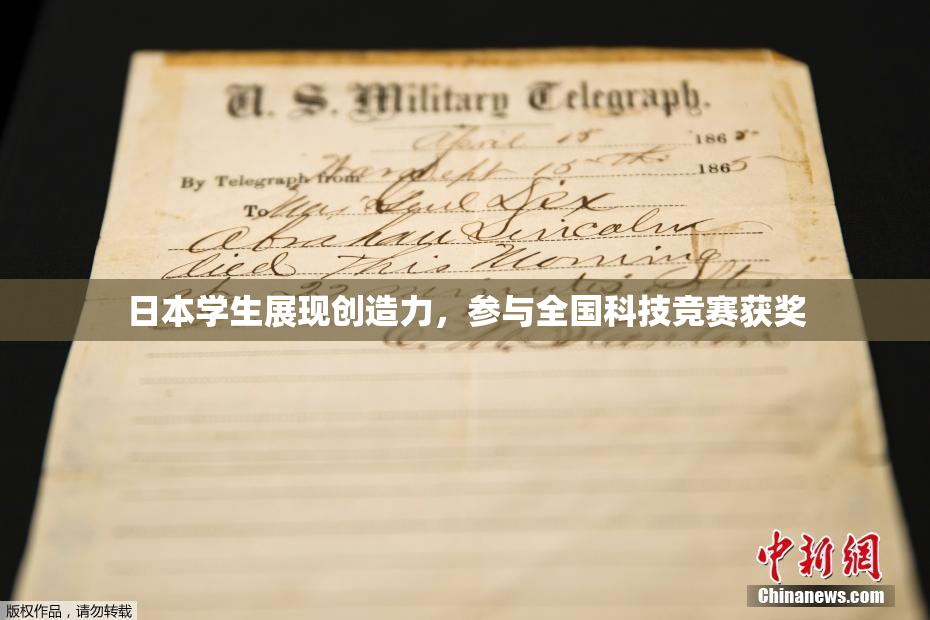 U. S. Military Telegraph.
April 15 1865
By Telegraph from War Dept 15th 1865
To Maj Genl Dix
Abraham Lincoln
died This Morning
at 22 minutes after
日本学生展现创造力，参与全国科技竞赛获奖
E. M. Stanton
中新網
Chinanews.com
版权作品，请勿转载